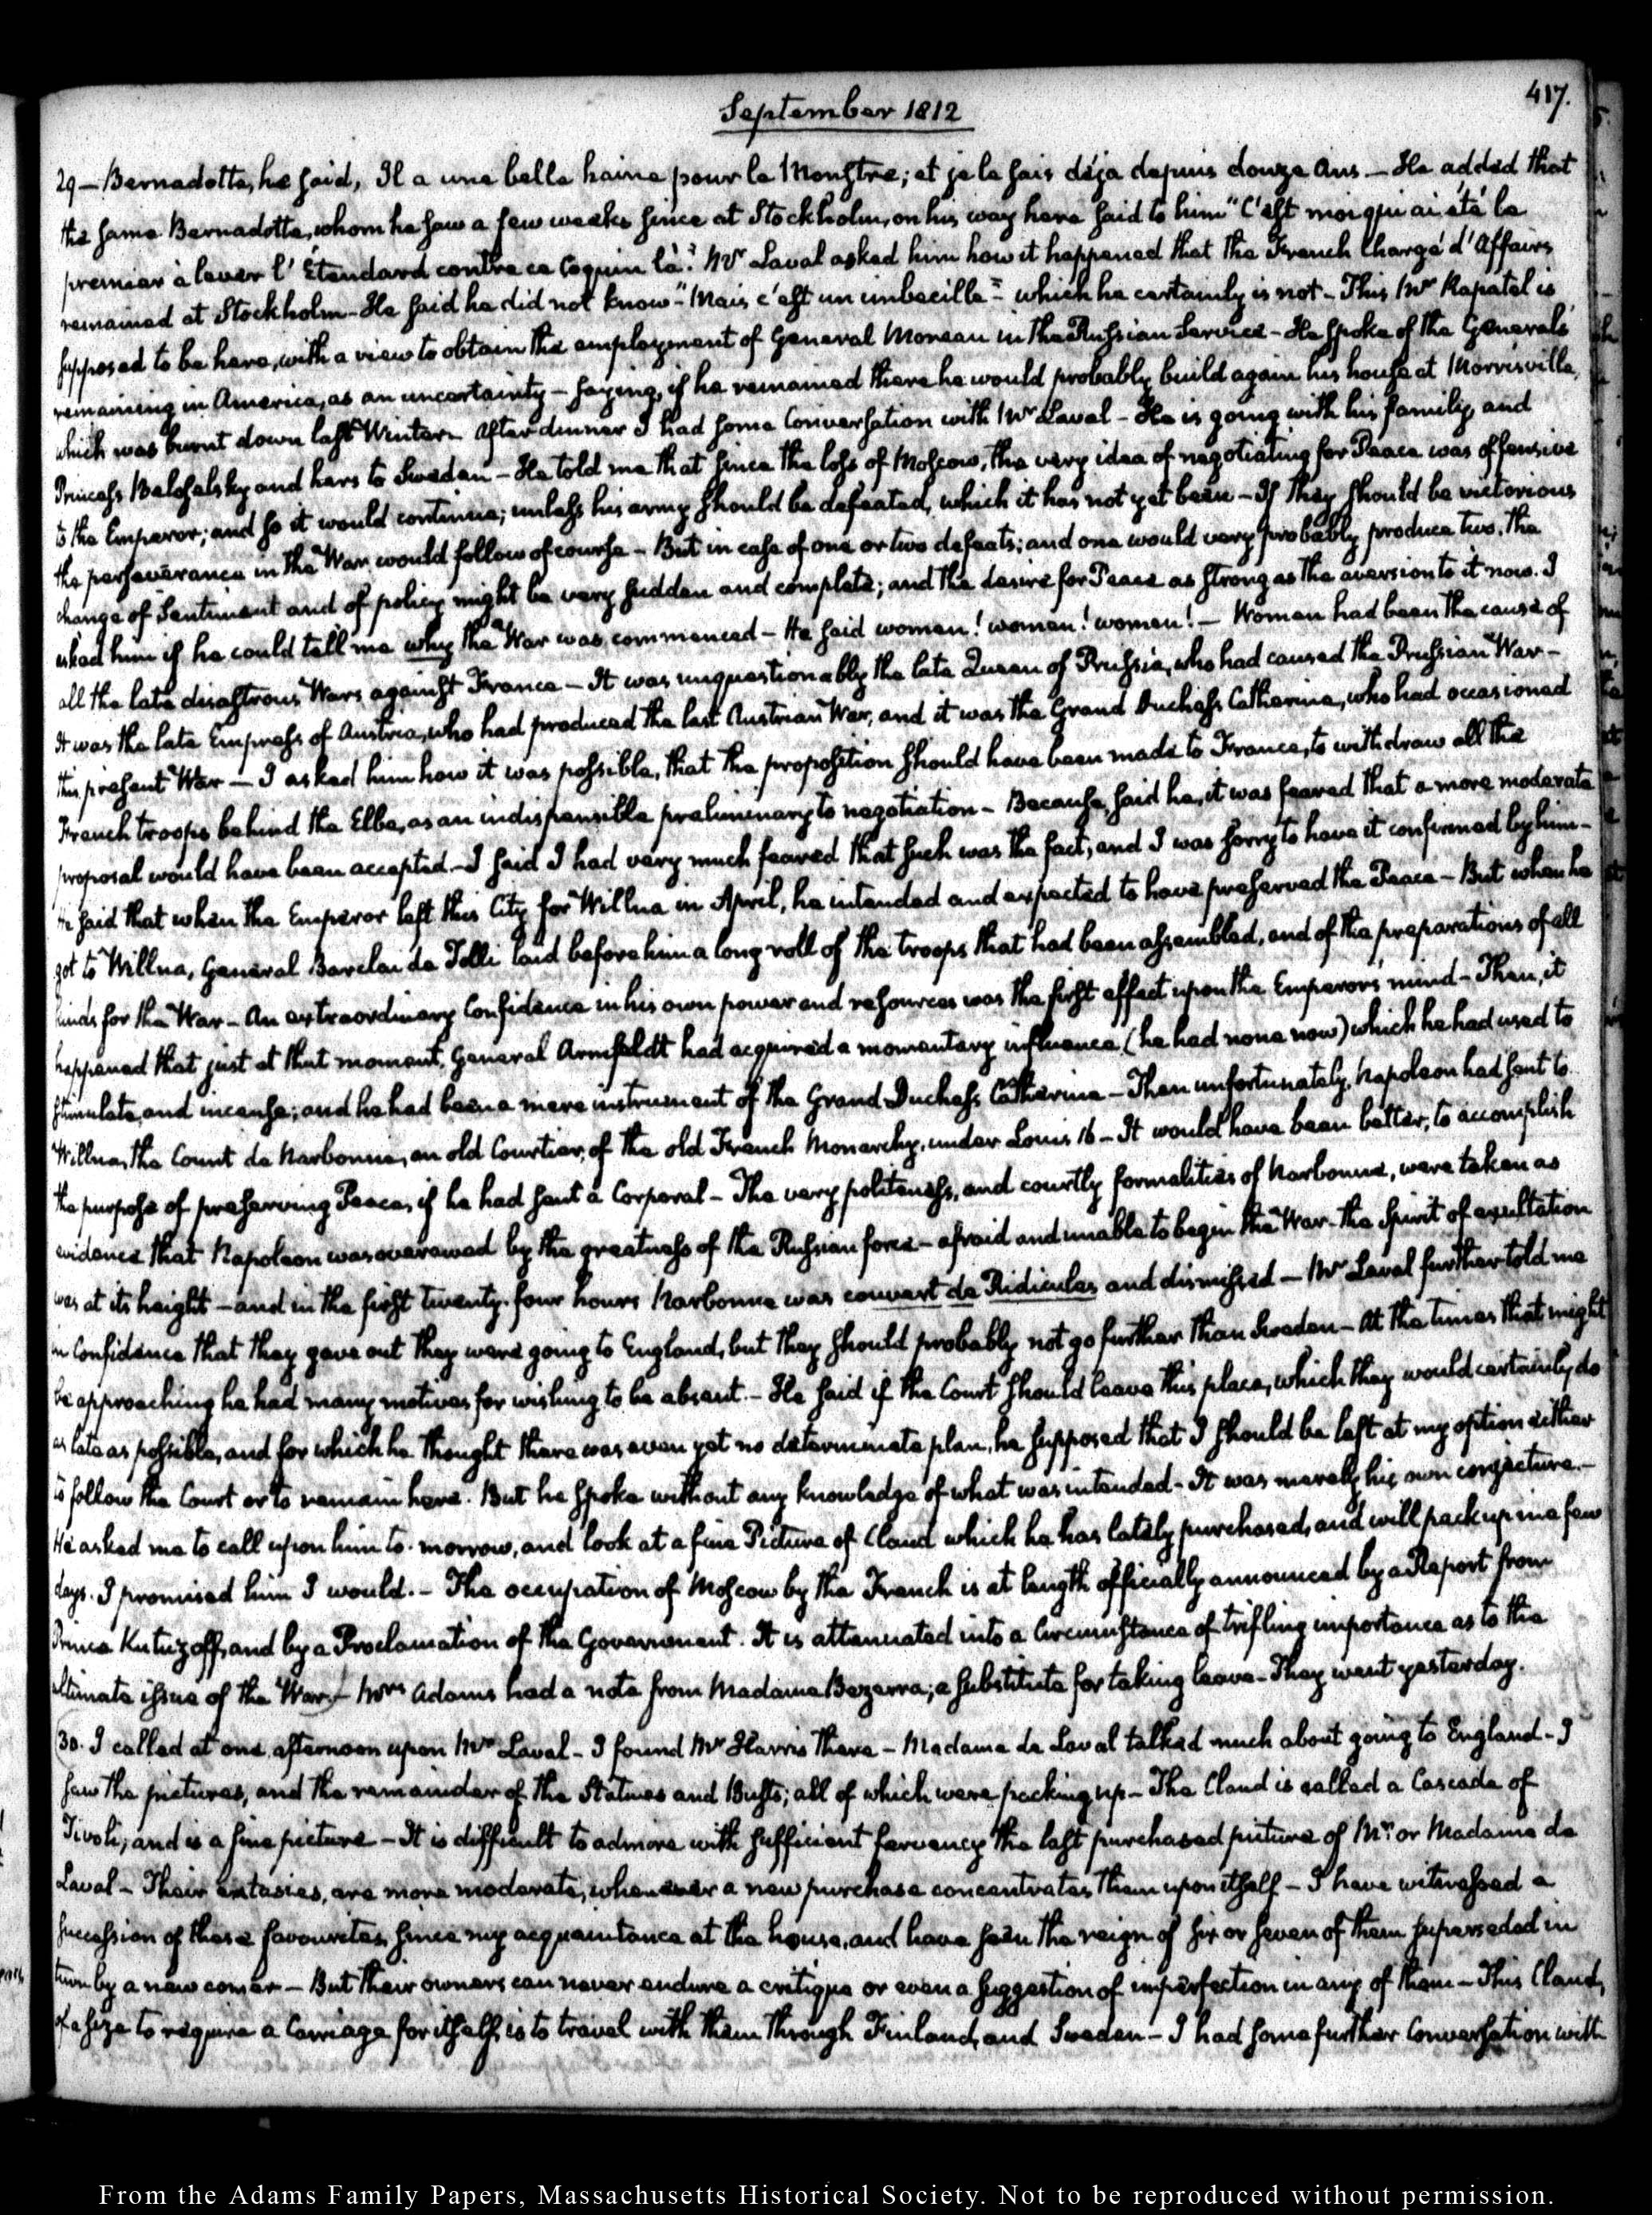 417.
September 1812
29 — Bernadotte, he said, Il a une belle haine pour le Monstre; et je le sais déja depuis douze Ans — He added that
the same Bernadotte, whom he saw a few weeks since at Stockholm, on his way here said to him "C'est moi qui ai été le
premier à lever l'Étendard contre ce Coquin là." Mr Laval asked him how it happened that the French Chargé d'Affairs
remained at Stockholm — He said he did not know — "Mais c'est un imbecille" — which he certainly is not — This Mr Rapatel is
supposed to be here, with a view to obtain the employment of General Moreau in the Russian Service — He spoke of the Generals
remaining in America, as an uncertainty — saying, if he remained there he would probably build again his house at Morrisville,
which was burnt down last Winter. After dinner I had some Conversation with Mr Laval — He is going with his family, and
Princess Beloselsky and hers to Sweden — He told me that since the loss of Moscow, the very idea of negotiating for Peace was offensive
to the Emperor; and so it would continue; unless his army should be defeated, which it has not yet been — If they should be victorious
the perseverance in the War would follow of course — But in case of one or two defeats; and one would very probably produce two, the
change of Sentiment and of policy might be very sudden and complete; and the desire for Peace as strong as the aversion to it now. I
asked him if he could tell me why the War was commenced — He said women! women! women! — Women had been the cause of
all the late disastrous Wars against France — It was unquestionably the late Queen of Prussia, who had caused the Prussian War —
It was the late Empress of Austria, who had produced the last Austrian War, and it was the Grand Duchess Catherine, who had occasioned
this present War — I asked him how it was possible, that the proposition should have been made to France, to withdraw all the
French troops behind the Elbe, as an indispensible preliminary to negotiation — Because, said he, it was feared that a more moderate
proposal would have been accepted — I said I had very much feared that such was the fact; and I was sorry to have it confirmed by him —
He said that when the Emperor left this City for Willna in April, he intended and expected to have preserved the Peace — But when he
got to Willna, General Barclai de Tolli laid before him a long roll of the troops that had been assembled, and of the preparations of all
kinds for the War — An extraordinary Confidence in his own power and resources was the first effect upon the Emperor's mind — Then, it
happened that just at that moment, General Armfeldt had acquired a momentary influence (he had none now) which he had used to
stimulate, and incense; and he had been a mere instrument of the Grand Duchess Catherine — Then unfortunately, Napoleon had sent to
Willna, the Count de Narbonne, an old Courtier, of the old French Monarchy, under Louis 16 — It would have been better, to accomplish
the purpose of preserving Peace, if he had sent a Corporal — The very politeness, and courtly formalities of Narbonne, were taken as
evidence that Napoleon was overawed by the greatness of the Russian force — afraid and unable to begin the War — The Spirit of exultation
was at its height — and in the first twenty-four hours Narbonne was couvert de Ridicules and dismissed — Mr Laval further told me
in Confidence that they gave out they were going to England, but they should probably not go further than Sweden — At the times that might
be approaching he had many motives for wishing to be absent. — He said if the Court should leave this place, which they would certainly do
as late as possible, and for which he thought there was even yet no determinate plan, he supposed that I should be left at my option either
to follow the Court or to remain here. But he spoke without any knowledge of what was intended — It was merely his own conjecture. —
He asked me to call upon him to-morrow, and look at a fine Picture of Claud which he has lately purchased, and will pack up in a few
days. I promised him I would. — The occupation of Moscow by the French is at length officially announced by a Report from
Prince Kutuzoff, and by a Proclamation of the Government. It is attenuated into a Circumstance of trifling importance as to the
ultimate issue of the War. — Mrs Adams had a note from Madame Bezerra; a substitute for taking leave — They went yesterday.
30. I called at one afternoon upon Mr Laval — I found Mr Harris there — Madame de Laval talked much about going to England — I
saw the pictures, and the remainder of the Statues and Busts; all of which were packing up — The Claud is called a Cascade of
Tivoli; and is a fine picture — It is difficult to admire with sufficient fervency the last purchased picture of Mr. or Madame de
Laval — Their extasies, are more moderate, whenever a new purchase concentrates them upon itself — I have witnessed a
succession of these favourites, since my acquaintance at the house, and have seen the reign of six or seven of them superseded in
turn by a new comer — But their owners can never endure a critique or even a suggestion of imperfection in any of them — This Claud,
of a size to require a Carriage for itself, is to travel with them through Finland, and Sweden — I had some further Conversation with
From the Adams Family Papers, Massachusetts Historical Society. Not to be reproduced without permission.